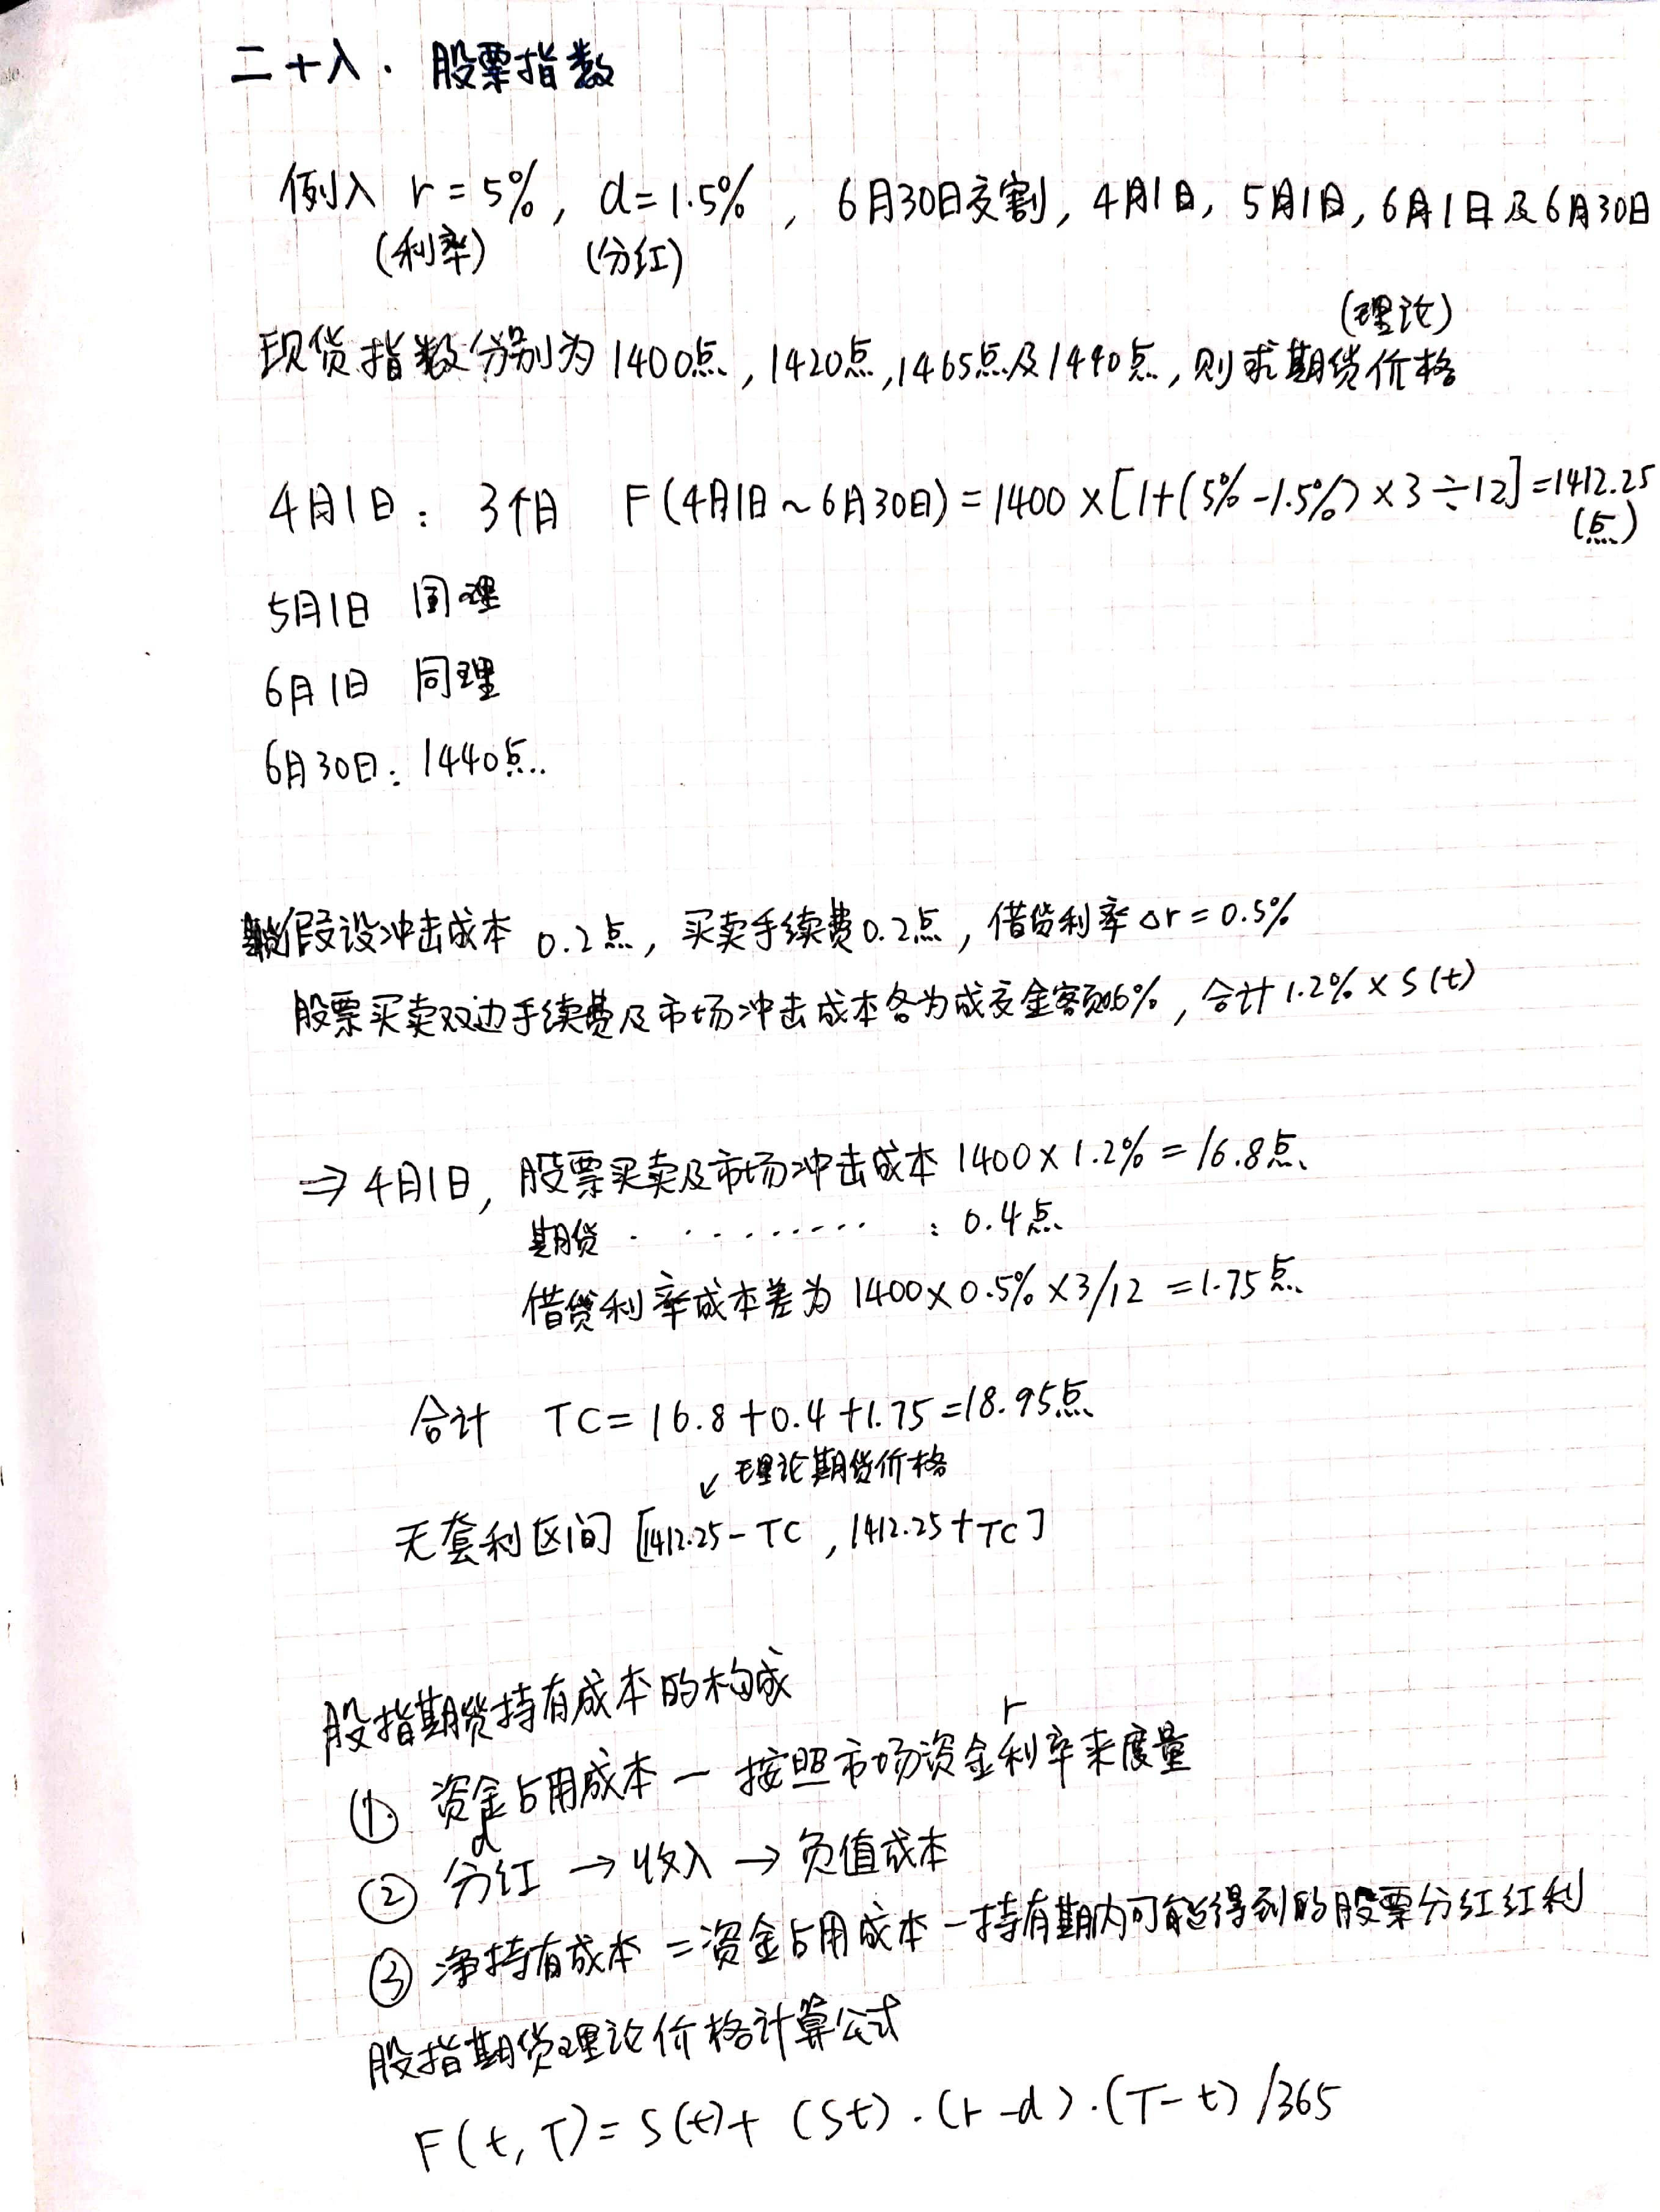 二十八. 股票指数
例八 r=5%, d=1.5%, 6月30日交割, 4月1日, 5月1日, 6月1日及6月30日
(利率) (分红)
(理论)
现货指数分别为1400点, 1420点, 1465点及1440点, 则求期货价格
4月1日: 3个月 F(4月1日~6月30日)=1400×[1+(5%-1.5%)×3÷12]=1412.25
(点)
5月1日 同理
6月1日 同理
6月30日: 1440点.
假设冲击成本 0.2点, 买卖手续费0.2点, 借贷利率△r=0.5%
股票买卖双边手续费及市场冲击成本各为成交金额0.6%, 合计1.2%×S(t)
⇒4月1日, 股票买卖及市场冲击成本 1400×1.2%=16.8点
期货 ········· : 0.4点
借贷利率成本差为 1400×0.5%×3/12=1.75点
合计 TC=16.8+0.4+1.75=18.95点
↙理论期货价格
无套利区间 [1412.25-TC, 1412.25+TC]
股指期货持有成本的构成
r
① 资金占用成本 — 按照市场资金利率来度量
d
② 分红 → 收入 → 负值成本
③ 净持有成本 =资金占用成本-持有期内可能得到的股票分红红利
股指期货理论价格计算公式
F(t,T)=S(t)+(St)·(r-d)·(T-t)/365